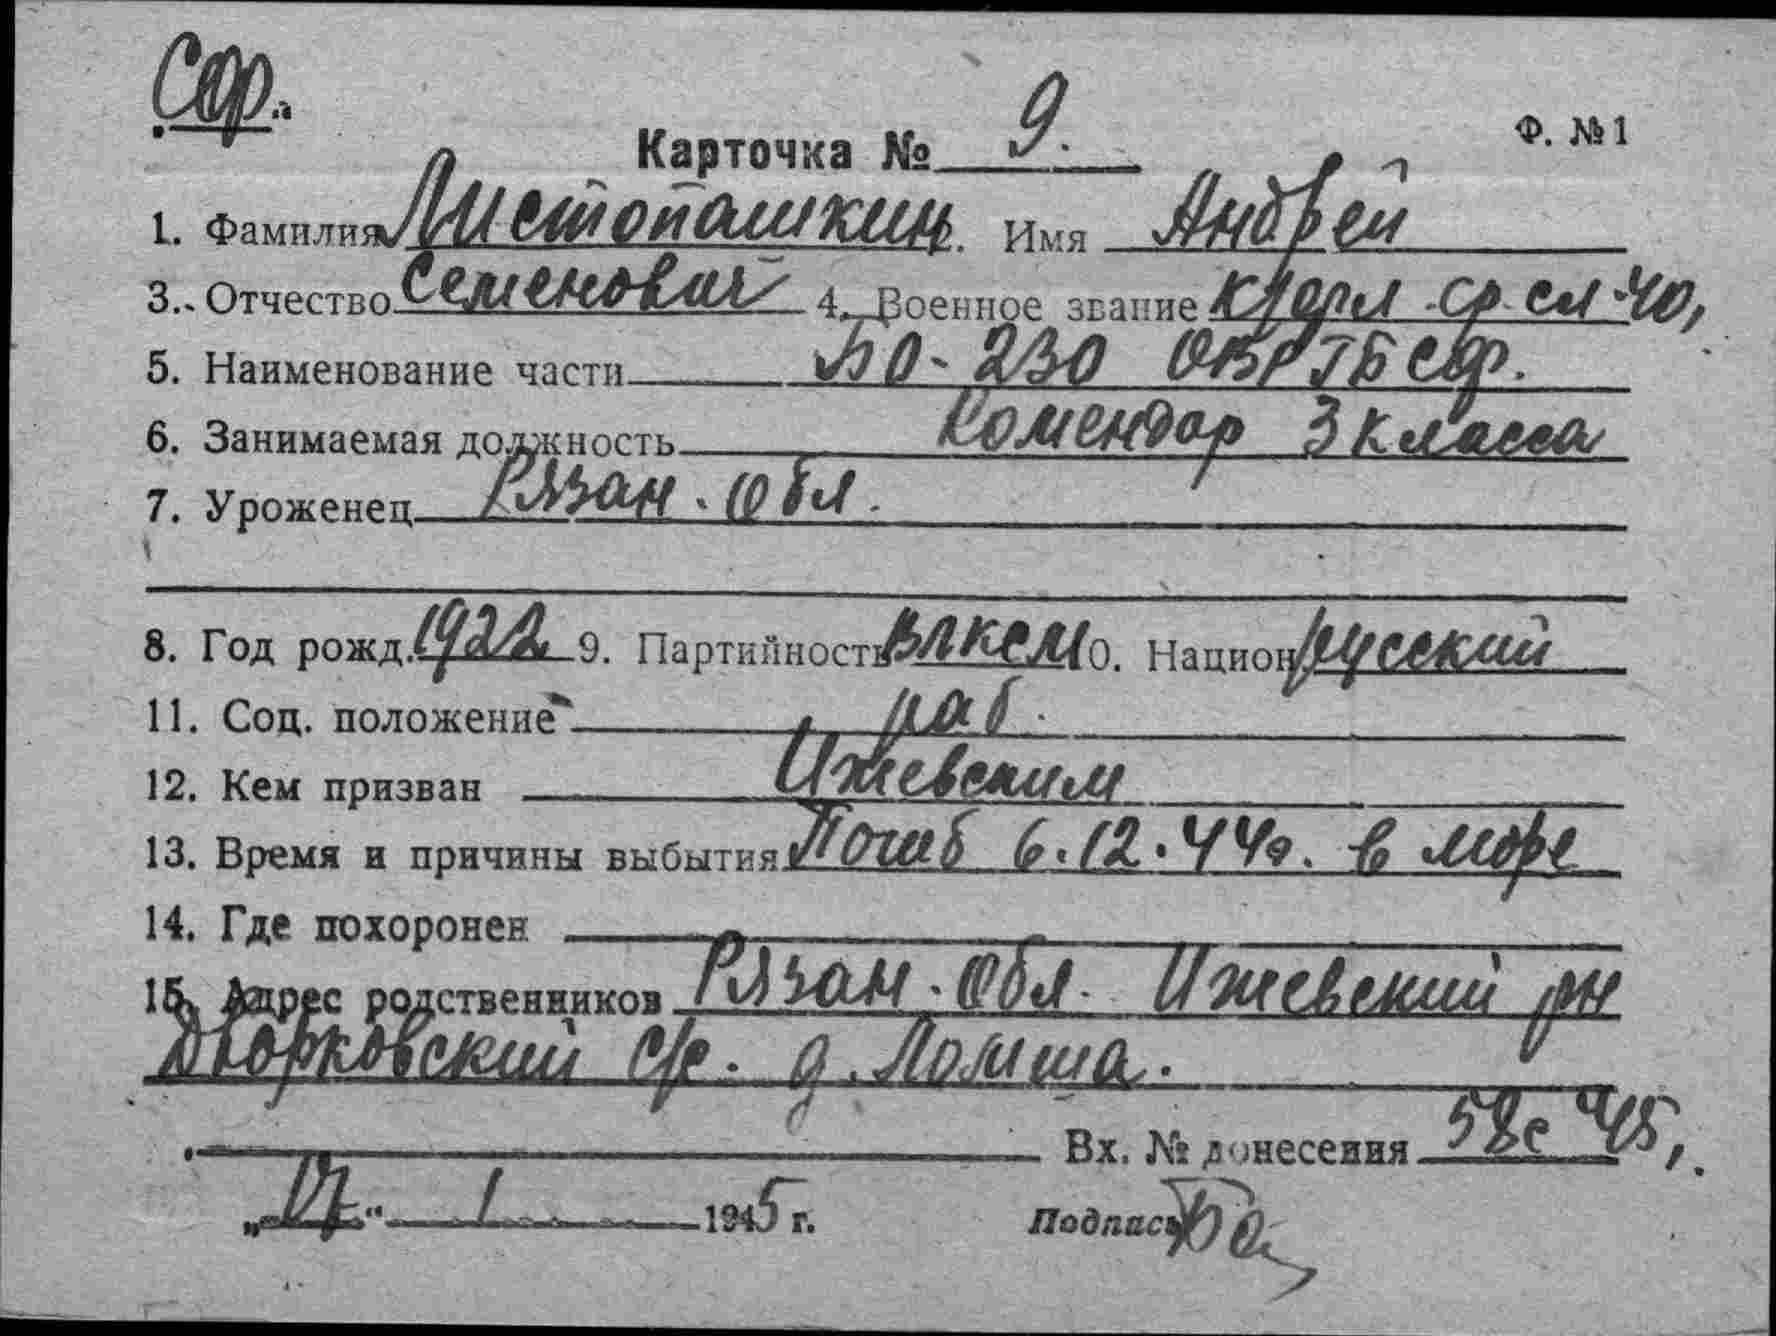 Сф.
Карточка № 9. Ф. №1
1. Фамилия Листопашкин. Имя Андрей
3. Отчество Семенович 4. Военное звание кр ср сл 40,
5. Наименование части БО-230 ОВР ТБ СФ.
6. Занимаемая должность Комендор 3 класса
7. Уроженец Рязан. обл.
8. Год рожд. 1922 9. Партийность ВЛКСМ 10. Национ. русский
11. Соц. положение раб.
12. Кем призван Ижевским
13. Время и причины выбытия Погиб 6.12.44г. в море
14. Где похоронен
15. Адрес родственников Рязан. обл. Ижевский рн
Дворковский с/с. д. Ломша.
Вх. № донесения 58с 45,
„17“ 1 1945 г. Подпись